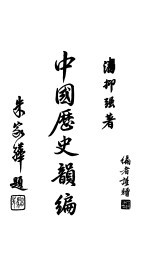 潘抑强著
中國歷史韻編
朱家驊題
編者謹贈